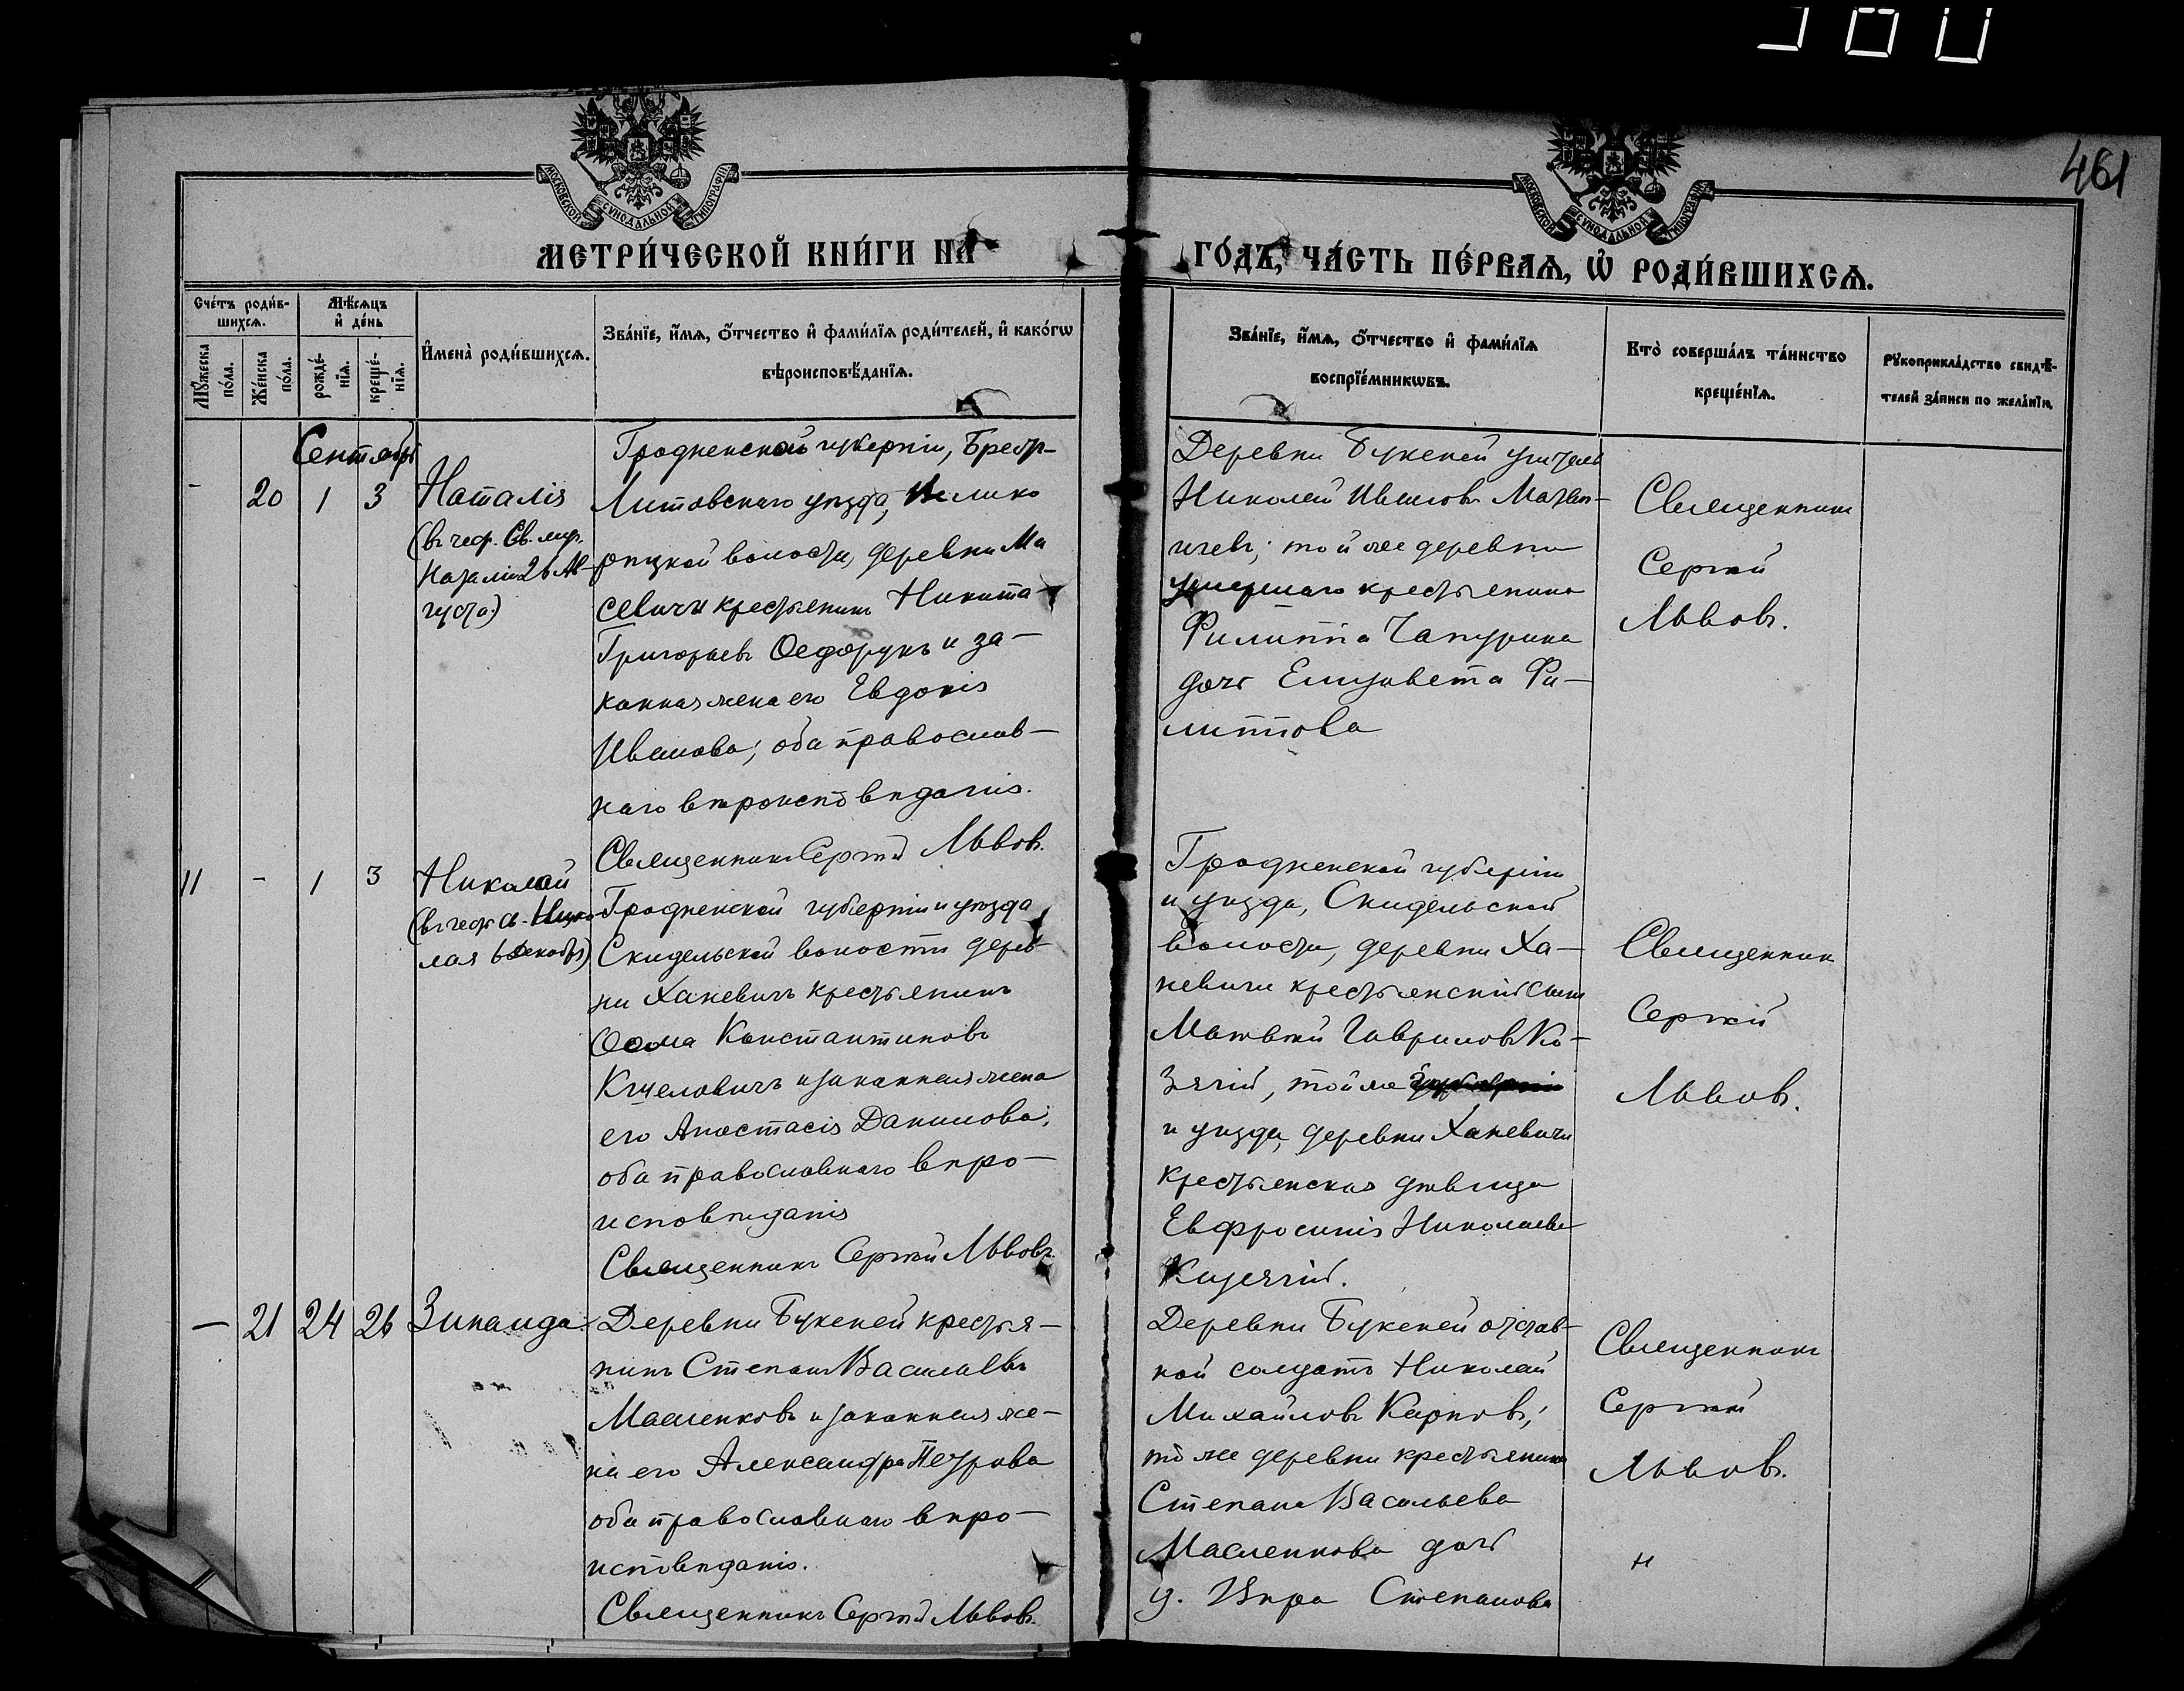 461
МОСКОВСКОЙ СѴНОДАЛЬНОЙ ТИПОГРАФІИ
МОСКОВСКОЙ СѴНОДАЛЬНОЙ ТИПОГРАФІИ
МЕТРИ́ЧЕСКОЙ КНИ́ГИ НА
ГО́ДЪ, ЧА́СТЬ ПЕ́РВАѦ, Ѡ҆ РОДИ́ВШИХСѦ.
Сче́тъ роди́в-
шихсѧ.
Мꙋ́жеска
по́ла.
Же́нска
по́ла.
Мѣ́сѧцъ
и҆ де́нь
рожде́-
нїѧ.
креще́-
нїѧ.
И҆мена̀ роди́вшихсѧ.
Зва́нїе, и҆́мѧ, ѻ҆́тчество и҆ фами́лїѧ роди́телей, и҆ како́гѡ
вѣроисповѣ́данїѧ.
Зва́нїе, и҆́мѧ, ѻ҆́тчество и҆ фами́лїѧ
воспрїе́мникѡвъ.
Кто̀ соверша́лъ та́инство
креще́нїѧ.
Рꙋкоприкла́дство свидѣ́-
телей за́писи по жела́нїю.
Сентябрь
- 20 1 3
Наталія
(въ чест. Св. муч.
Наталіи 26 Ав-
густа)
Гродненской губерніи, Брестъ-
Литовскаго уѣзда, Велико
рицкой волости, деревни Ма
севичи крестьянинъ Никита
Григорьевъ Ѳедорукъ и за-
конная жена его Евдокія
Иванова; оба православ-
наго вѣроисповѣданія.
Священникъ Сергій Львовъ.
Деревни Букеней учитель
Николай Ивановъ
той же деревни
умершаго крестьянина
Филиппа Чапурина
дочь Елизавета Фи-
липпова
Священникъ
Сергій
Львовъ.
11 - 1 3
Николай
(въ честь св. Нико
лая 6 Декабря)
Гродненской губерніи и уѣзда
Скидельской волости дерев-
ни Ханевичъ крестьянинъ
Ѳома Константиновъ
и законная жена
его Анастасія Данилова;
оба православнаго вѣро-
исповѣданія
Священникъ Сергій Львовъ.
Гродненской губерніи
и уѣзда, Скидельской
волости, деревни Ха-
невичи крестьянскій сынъ
Матвѣй Гавриловъ Ко-
зячій, той же
и уѣзда, деревни Ханевичи
крестьянская дѣвица
Евфросинія Николаева
Козячій.
Священникъ
Сергій
Львовъ.
— 21 24 26
Зинаида
Деревни Букеней крестья-
нинъ Степанъ Васильевъ
Масленковъ и законная же-
на его Александра Петрова
оба православнаго вѣро-
исповѣданія.
Священникъ Сергій Львовъ.
Деревни Букеней отстав-
ной солдатъ Николай
Михайловъ Карповъ;
той же деревни крестьянина
Степана Васильева
Масленкова дочь
д. Вѣра Степанова
Священникъ
Сергій
Львовъ.